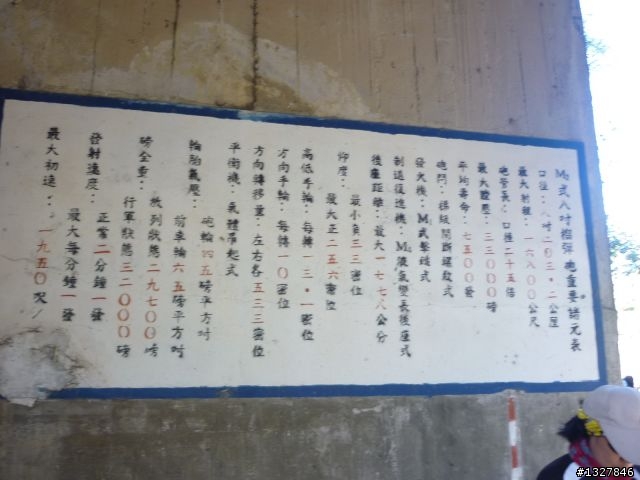 M₂式八吋榴彈砲重要諸元表
口徑：八吋二0三．二公厘
最大射程：一六八00公尺
砲管長：口徑二十五倍
最大膛壓：三三000磅
平均壽命：七五00發
砲閂：梯級間斷螺紋式
發火機：M₁式擊發式
制退復進機：M₄液氣變長後座式
後座距離：最大一七七八公分
仰度：最小負三三密位
最大正二五六密位
高低手輪：每轉一三．一密位
方向手輪：每轉一0密位
方向轉移量：左右各五三三密位
平衡機：氣體吊起式
輪胎氣壓：砲輪四五磅平方吋
前車輪六五磅平方吋
磅全重：放列狀態二九七00磅
行軍狀態三二000磅
發射速度：正常二分鐘一發
最大每分鐘一發
最大初速：一九五0呎/
#1327846